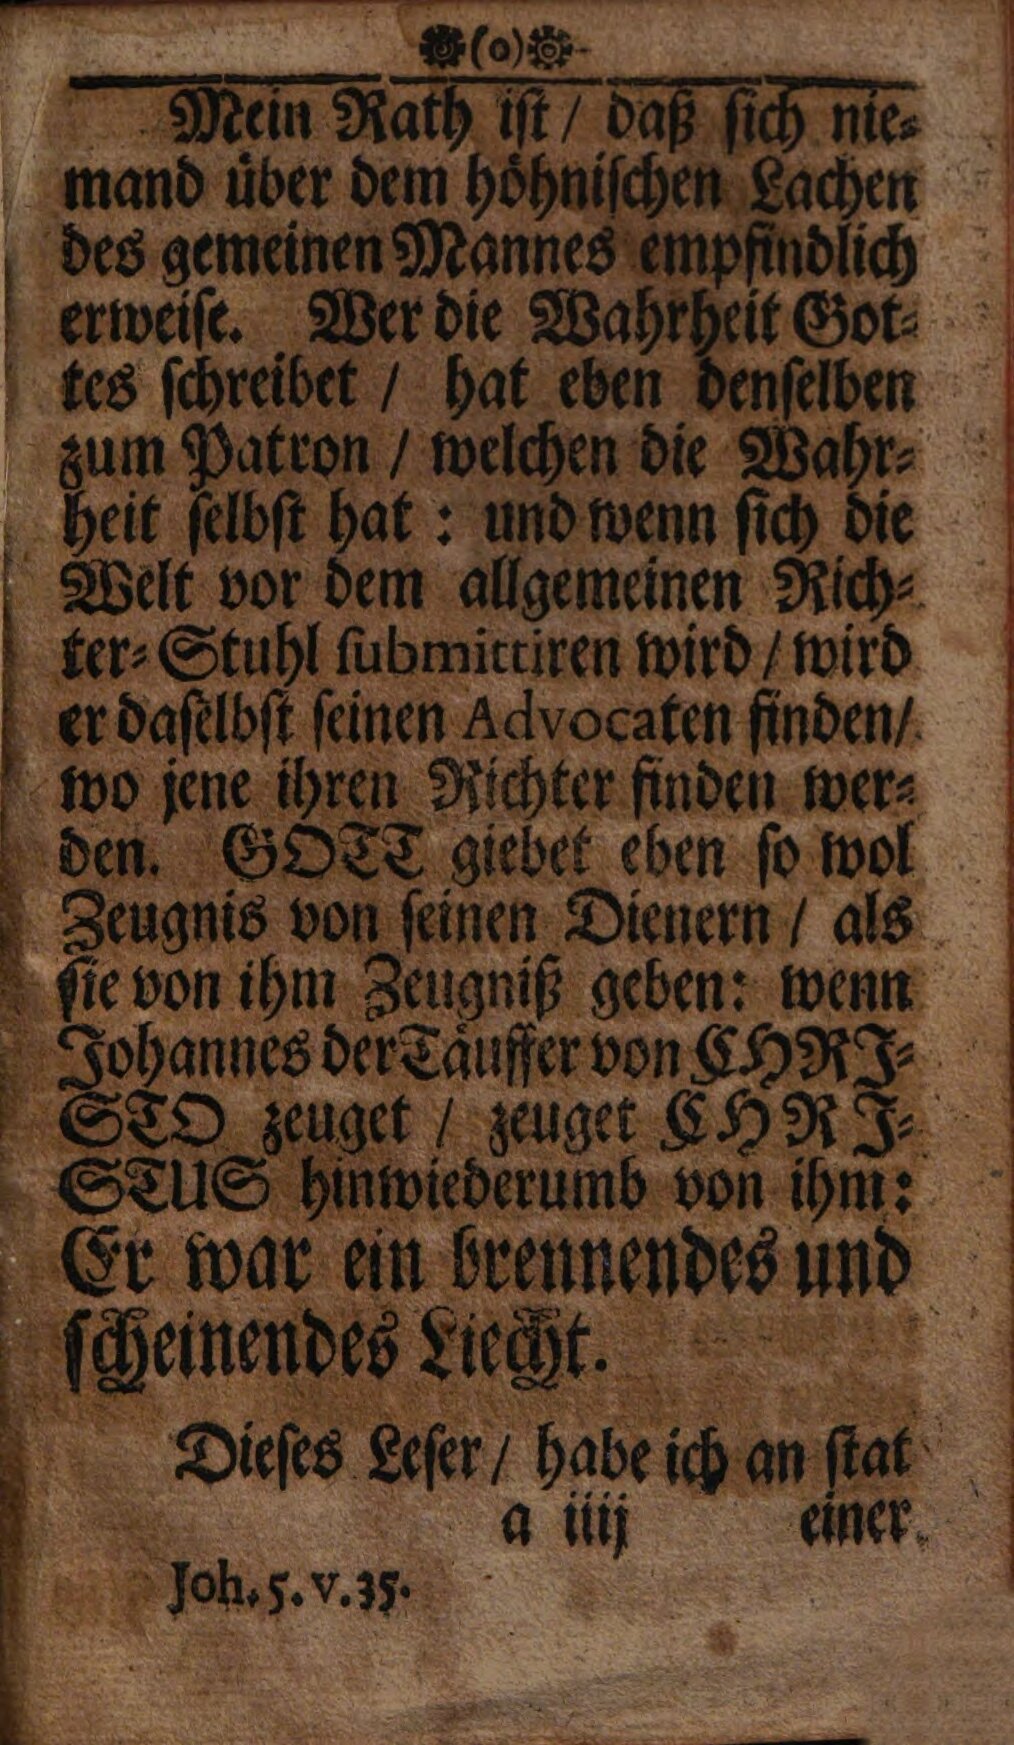 (o)
Mein Rath ist / daß sich nie-
mand über dem höhnischen Lachen
des gemeinen Mannes empfindlich
erweise. Wer die Wahrheit Got-
tes schreibet / hat eben denselben
zum Patron / welchen die Wahr-
heit selbst hat : und wenn sich die
Welt vor dem allgemeinen Rich-
ter-Stuhl submittiren wird / wird
er daselbst seinen Advocaten finden /
wo jene ihren Richter finden wer-
den. GOTT giebet eben so wol
Zeugnis von seinen Dienern / als
sie von ihm Zeugniß geben: wenn
Johannes der Täuffer von CHRI-
STO zeuget / zeuget CHRI-
STUS hinwiederumb von ihm:
Er war ein brennendes und
scheinendes Liecht.
Dieses Leser / habe ich an stat
a iiij einer
Joh. 5. v. 35.